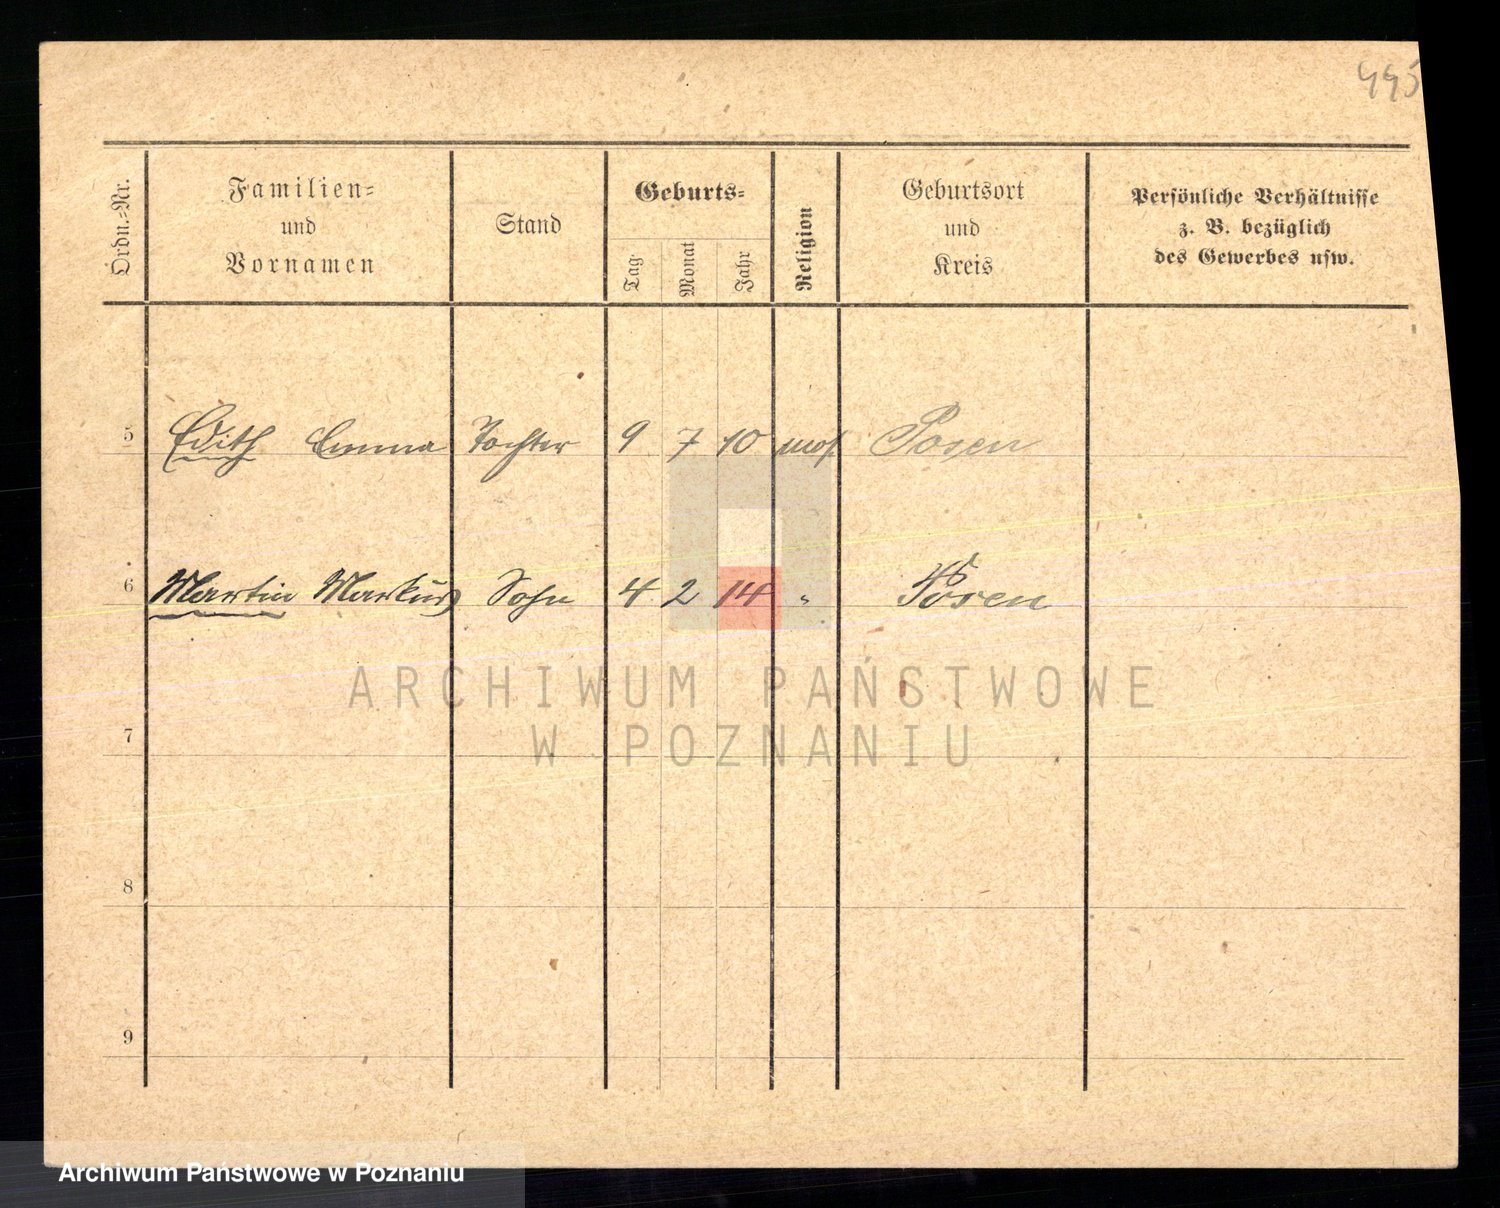 495
Ordn.-Nr.
Familien-
und
Vornamen
Stand
Geburts-
Tag
Monat
Jahr
Religion
Geburtsort
und
Kreis
Persönliche Verhältnisse
z. B. bezüglich
des Gewerbes usw.
5 Edith Emma Tochter 9 7 10 mos. Posen
6 Martin Markus Sohn 4 2 14 " Posen
7
8
9
ARCHIWUM PAŃSTWOWE
W POZNANIU
Archiwum Państwowe w Poznaniu